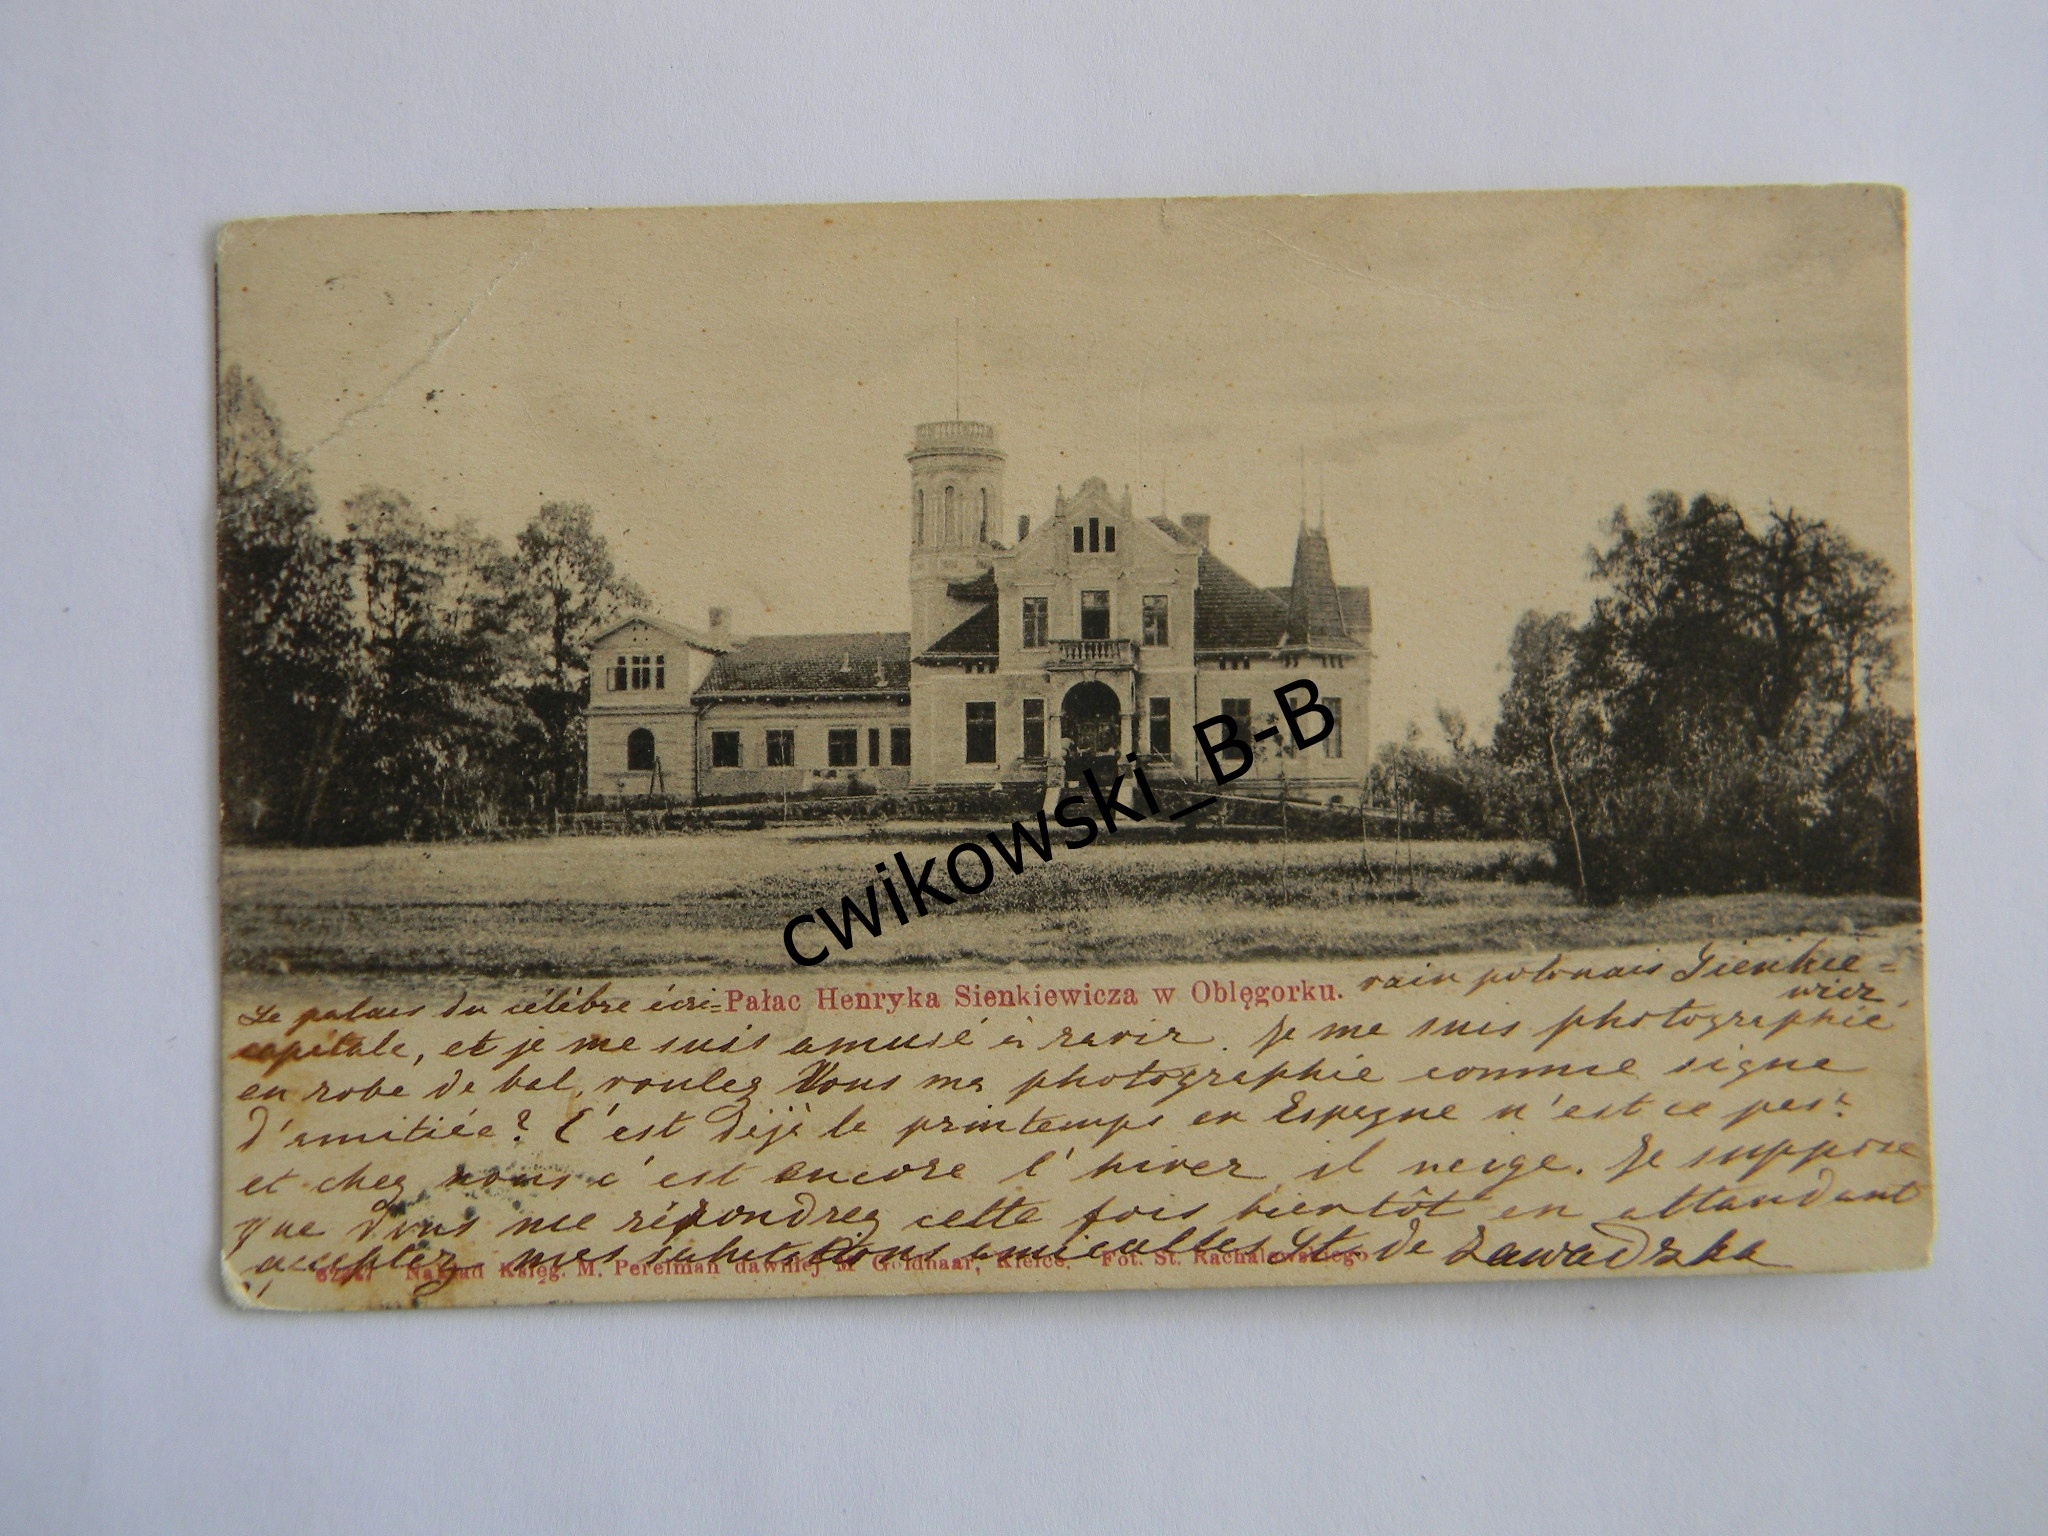 cwikowski_B-B
Le palais du célèbre écri= Pałac Henryka Sienkiewicza w Oblęgorku. vain polonais Sienkie=
wicz.
capitale, et je me suis amusé à ravir. Je me suis photographié
en robe de bal, voulez Vous ma photographie comme signe
d'amitiée? C'est déjà le printemps en Espagne n'est ce pas?
et chez nous c'est encore l'hiver, il neige. Je suppose
que Vous me répondrez cette fois bientôt en attandant
acceptez mes salutations amicalles St. de Zawadzka
Nakład Księg. M. Perelman dawniej M Goldhaar, Kielce. Fot. St. Rachalewskiego